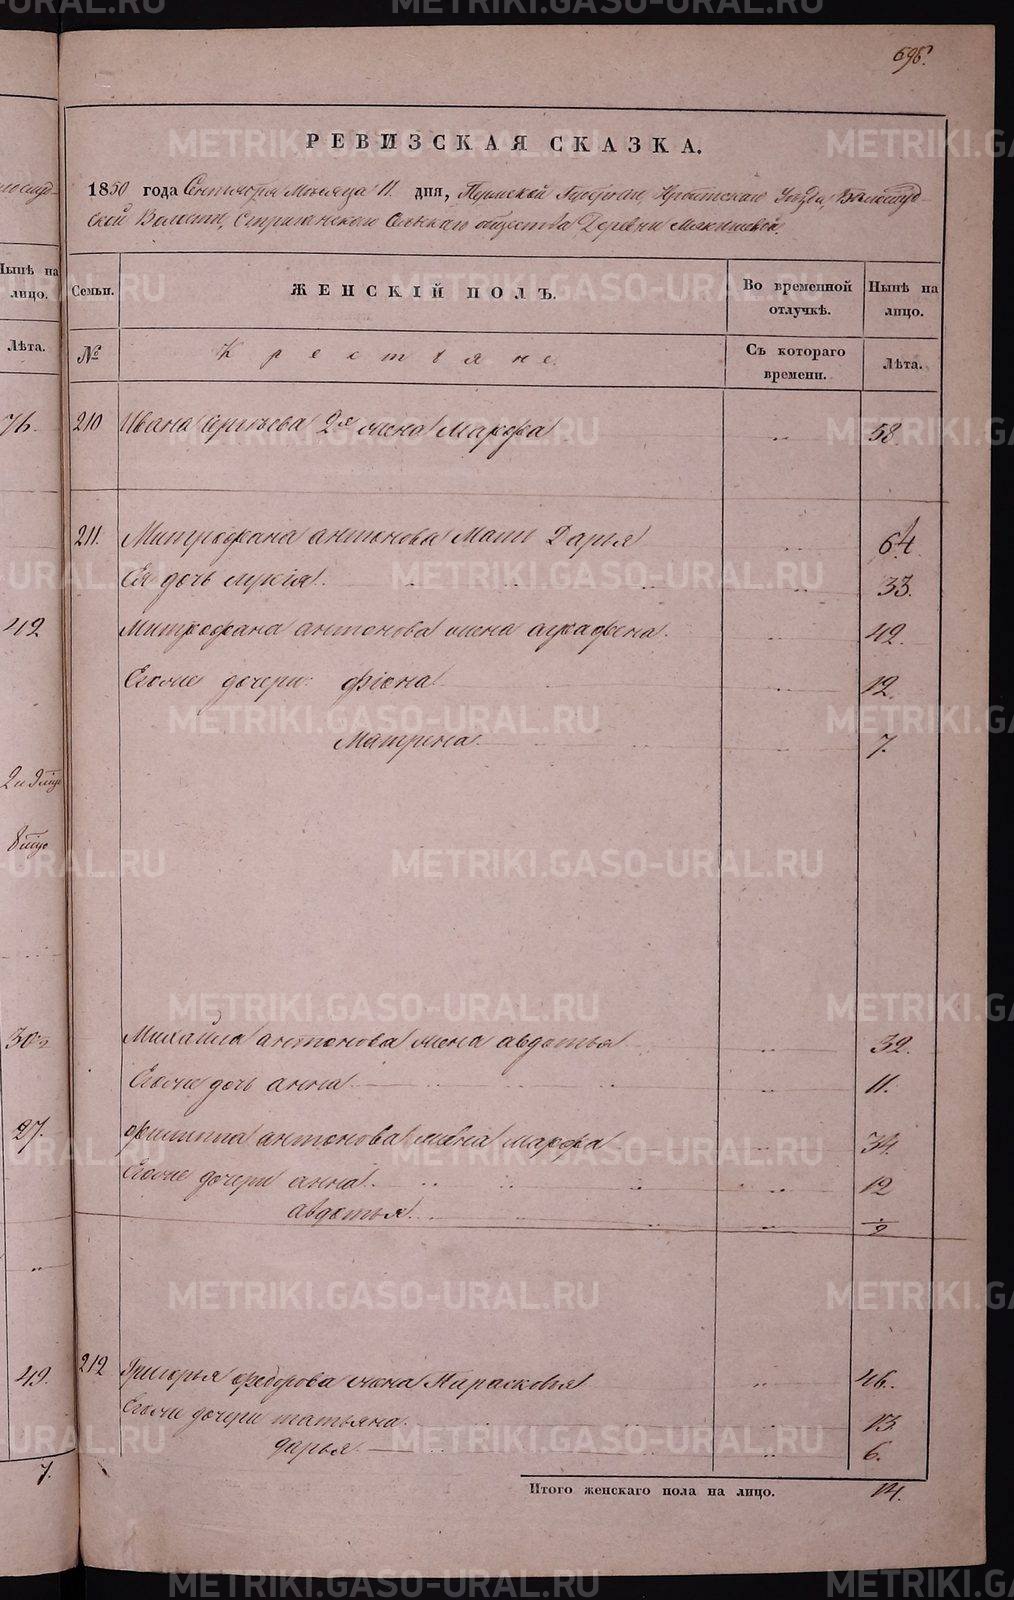 695.
РЕВИЗСКАЯ СКАЗКА.
1850 года Сентября Месяца 11 дня, Пермской Губернии, Ирбитскаго Уезда, Белослуд-
ской Волости, Стриганскаго Сельскаго общества Деревни Мякишевой.
Нынѣ на лицо.
Семьи.
ЖЕНСКІЙ ПОЛЪ.
Во временной отлучкѣ.
Нынѣ на лицо.
Лѣта.
№
Крестьяне.
Съ котораго времени.
Лѣта.
76. 210 Ивана 2я жена Марфа " 58.
211. Митрофана антонова Мать Дарья 64.
Ея дочь лукія. 33.
42 Митрофана антонова жена аграфена. 42.
Егоже дочери: фіона 12.
Матрена. 7.
30½ Михаила антонова жена авдотья 32.
Егоже дочь анна 11.
27. филиппа антонова жена марфа 34.
Егоже дочери анна. 12
авдотья. ½
49. 212 Григорья федорова жена Парасковья 46.
Егоже дочери татьяна. 13.
дарья. 6.
7.
Итого женскаго пола на лицо. 14.
METRIKI.GASO-URAL.RU